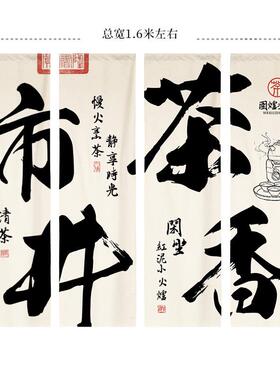 总宽1.6米左右
市井
慢火烹茶
静享時光
清茶
茶香
閑坐
紅泥小火爐
茶
圍爐